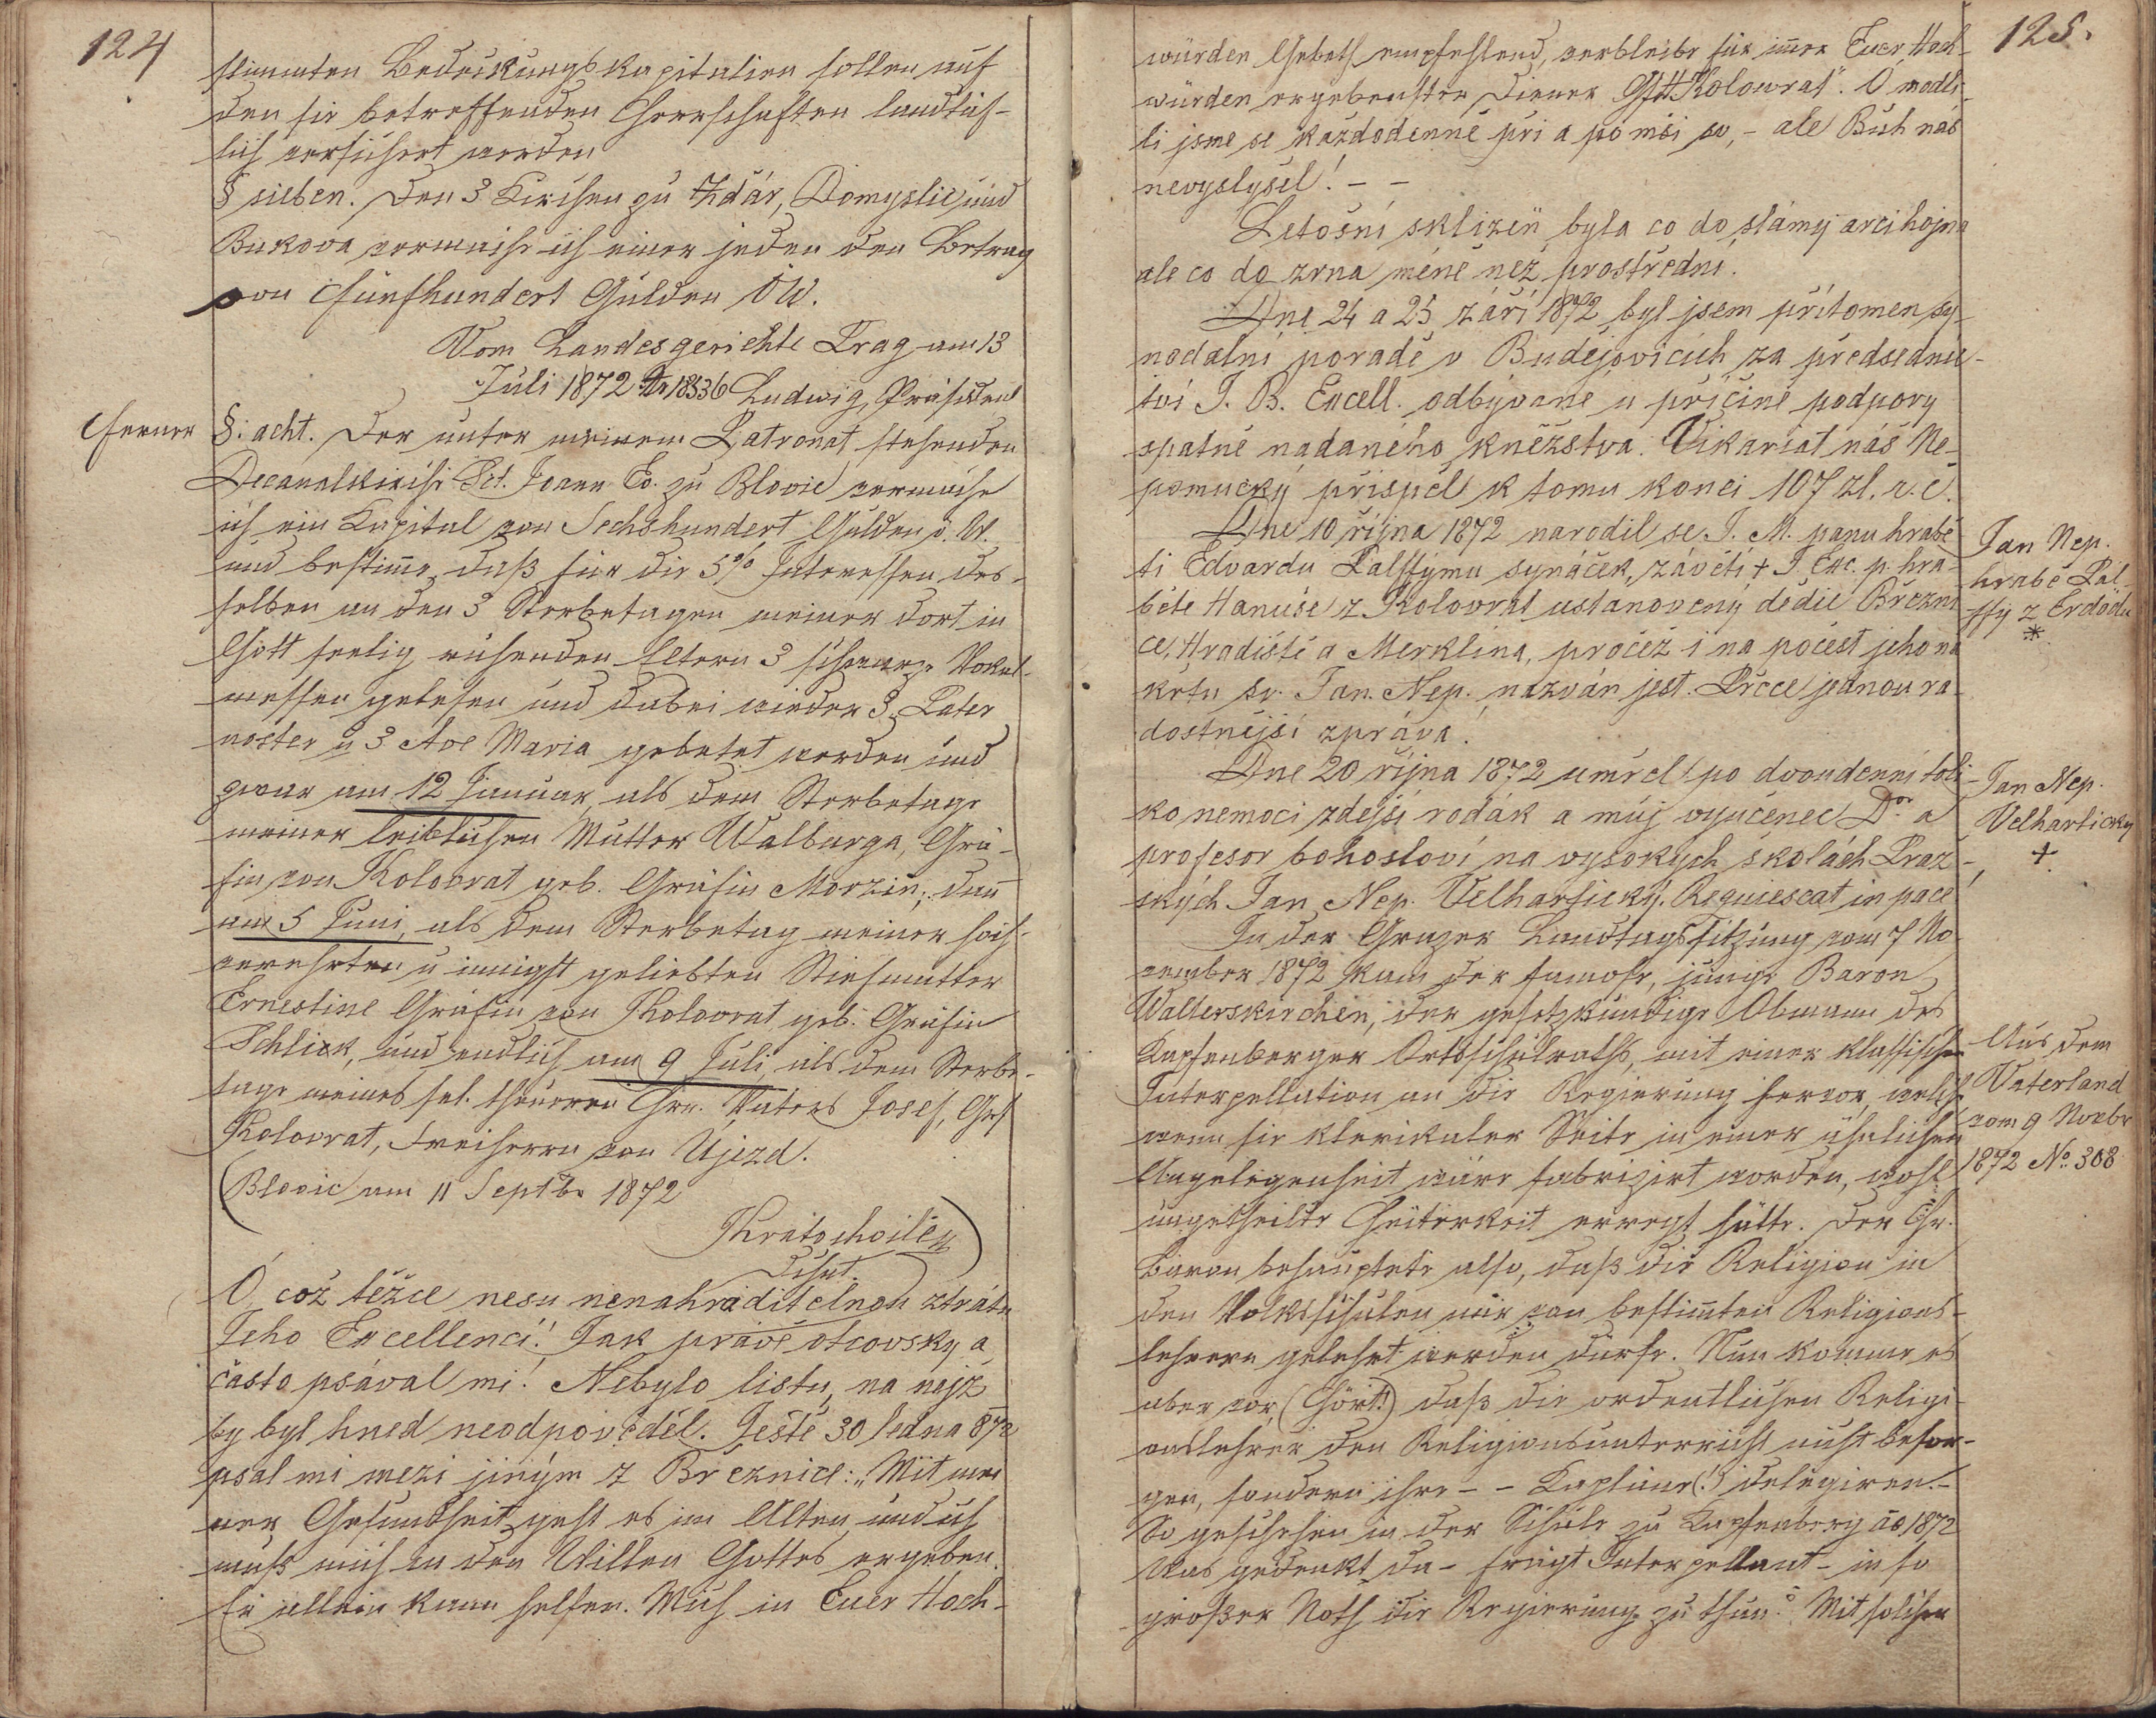 124
stimmten Bedeckungskapitalien sollen auf
den sie betreffenden Herrschaften landtäf-
lich versichert werden
§ sieben. Den 3 Kirchen zu Ždár, Domyslic und
Bukova vermache ich einer jeden den Betrag
von Fünfhundert Gulden ÖW.
Vom Landesgerichte Prag am 13
Juli 1872 Nr 18536 Ludwig, Präsident
Ferner
§: acht. Der unter meinem Patronat stehenden
Decanalkirche Sct. Joann Ev. zu Blovic vermache
ich ein Kapital von Sechshundert Gulden ö. W.
und bestimme, daß für die 5% Interessen des-
selben an den 3 Sterbetagen meiner dort in
Gott seelig ruhenden Eltern 3 schwarze Vokal-
messen gelesen und dabei wieder 3 Pater
noster u 3 Ave Maria gebetet werden und
zwar am 12 Januar, als dem Sterbetage
meiner leiblichen Mutter Walburga, Grä-
fin von Kolovrat geb. Gräfin Morzin; dann
am 5 Juni, als dem Sterbetag meiner hoch-
verehrten u innigst geliebten Stiefmutter
Ernestine Gräfin von Kolovrat geb. Gräfin
Schlick, und endlich am 9 Juli, als dem Sterbe-
tage meines sel. theueren Hrn. Vaters Josef, Grf
Kolovrat, Freiherrn von Ujezd.
(Blovic am 11 Septbr 1872
Kratochvile
Dechnt.)
Ó, což těžce nesu nenahraditelnou ztrátu
Jeho Excellencí! Jak právě otcovsky a
často psával mi! Nebylo listu, na nejž
by byl hned neodpověděl. Ještě 30 ledna 872
psal mi mezi jiným z Březnice: „Mit mei
ner Gesundheit geht es im Alten und ich
muß mich in den Willen Gottes ergeben.
Er allein kann helfen. Mich in Euer Hoch-
125.
würden Gebeth empfehlend, verbleibe für immer Euer Hoch-
würden ergebenster Diener Kolowrat". Ó, modli-
li jsme se každodenně při a po mši sv, - ale Bůh nás
nevyslyšel! - -
Letošní sklizeň byla co do slámy arci hojna
ale co do zrna méně než prostřední.
Dne 24 a 25 září 1872 byl jsem přítomen sy-
nodalní poradě v Budějovicích za předsednic-
tví J. B. Excell. odbývané u příčině podpory
spatně nadaného kněžstva. Vikariat náš Ne-
pomucký přispěl k tomu konci 107 zl. r. č.
Dne 10 října 1872 narodil se J. M. panu hrabě
ti Edvardu Palffymu synáček, závětí + J. Exc. p. hra-
běte Hanuše z Kolovrat ustanovený dědic Březni
ce, Hradiště a Merklína, pročež i na počest jeho na
křtu sv. Jan. Nep. nazván jest. Přece jednou ra-
dostnější zpráva!
Jan Nep.
hrabě Pál-
ffy z Erdödu
*
Dne 20 října 1872 umřel po dvoudenní toli-
ko nemoci zdejší rodák a můj vyučenec Dor a
profesor bohosloví na vysokych školách Praž-
ských Jan Nep. Velhartický. Requiescat in pace!
Jan Nep.
Velhartický
+.
In der Grazer Landtagssitzung vom 7 No
vember 1872 kam der famose, junge Baron
Walterskirchen, der gesetzkundige Obmann des
Kapfenberger Ortsschulraths, mit einer klassischen
Interpellation an die Regierung hervor, welche
wenn sie klerikaler Seite in einer ähnlichen
Angelegenheit wäre fabrizirt worden, wohl
ungetheilte Heiterkeit erregt hätte. Der Hr.
Baron behauptete also, daß die Religion in
den Volksschulen nur von bestimten Religions-
lehrern gelehrt werden dürfe. Nun komme es
aber vor, (Hört!) daß die ordentlichen Religi-
onslehrer den Religionsunterricht nicht besor-
gen, sondern ihre - - Kapläne(!) delegiren. -
So geschehen in der Schule zu Kapfenberg ao 1872
Was gedenkt da - frägt Interpellant - in so
großer Noth die Regierung zu thun? Mit solchen
Aus dem
Vaterland
vom 9 Novbr
1872 No. 308